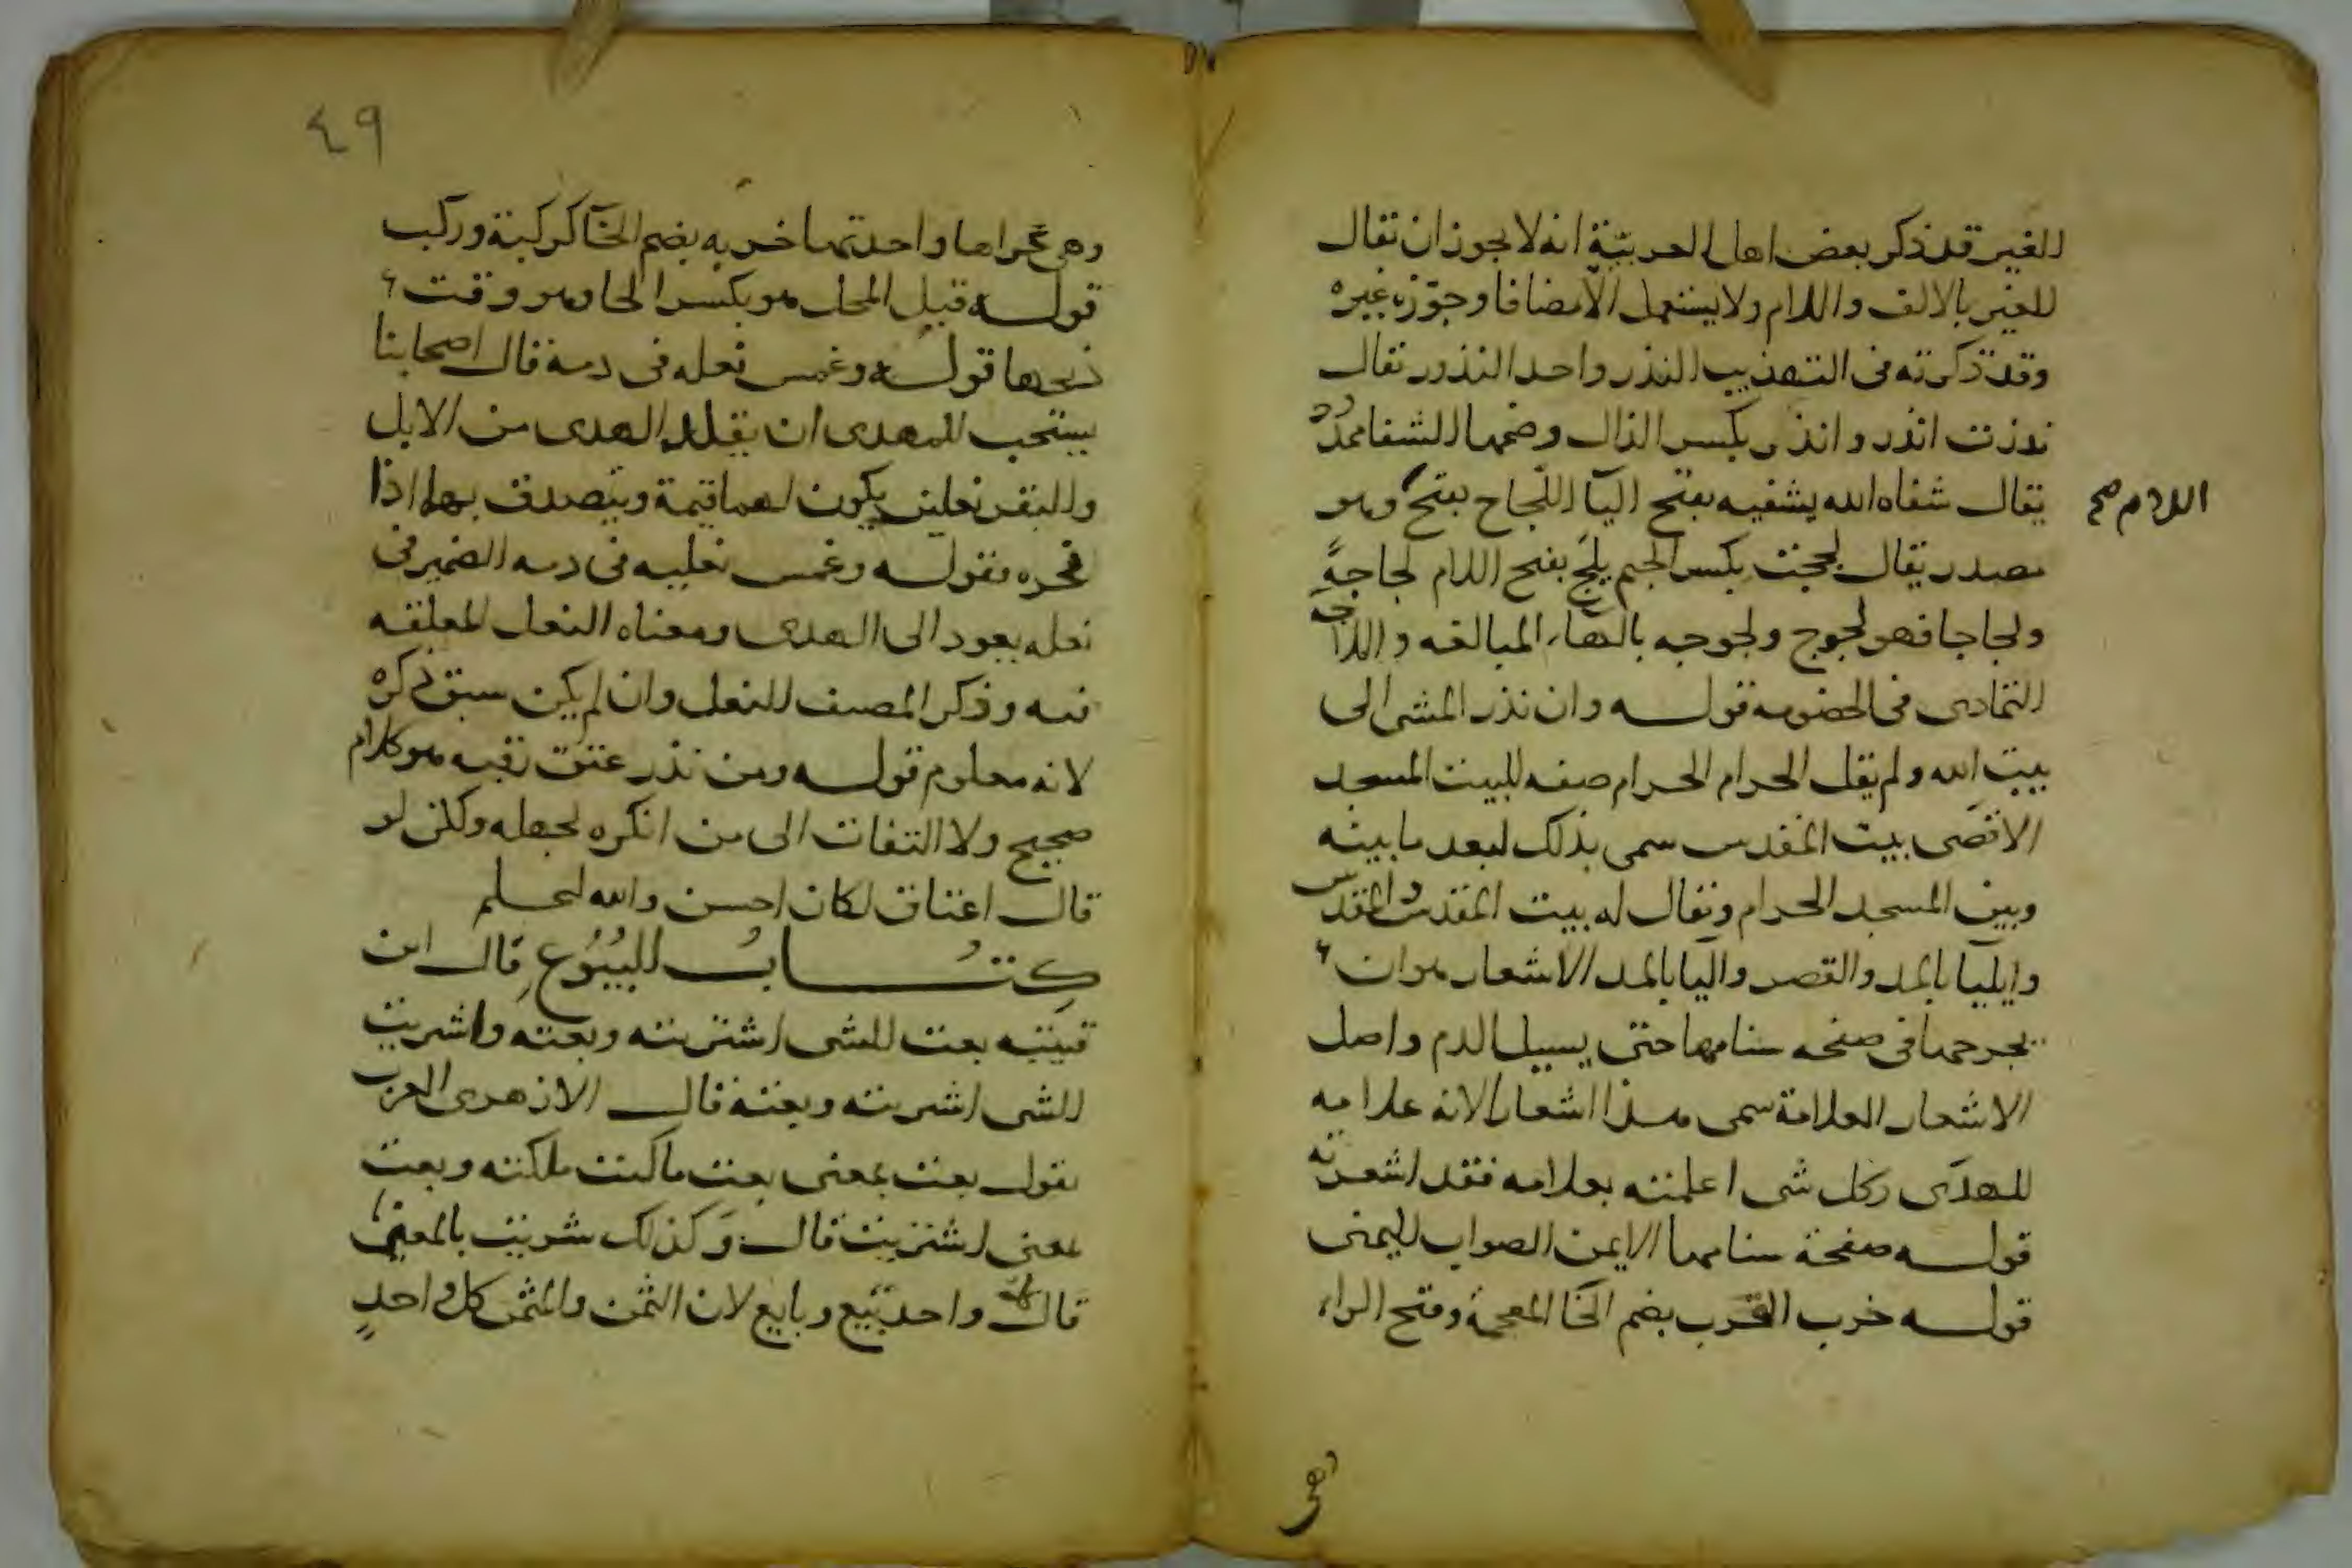 للغير قد ذكر بعض اهل العربية انه لا يجوز ان يقال
للغير بالالف واللام ولا يستعمل الا مضافا وجوّزه غيره
وقد ذكرته في التهذيب النذر واحد النذور يقال
نذرت انذر وانذر بكسر الذال وضمها الشفا ممدود
يقال شفاه الله يشفيه بفتح اليآ اللّجاج بفتح وهو
اللام صح
مصدر يقال لججت بكسر الجيم يلج بفتح اللام لجاجةً
ولجاجا فهو لجوج ولجوجه بالهاء المبالغه و
التمادى فى الخصومه قوله وان نذر المشى الى
بيت الله ولم يقل الحرام الحرام صفه للبيت المسجد
الاقصى بيت المقدس سمى بذلك لبعد ما بينه
وبين المسجد الحرام ويقال له بيت المقدس والمقدس
وايليآ بالمد والقصر واليا بالمد الاشعار هو ان
يجرحها فى صفحه سنامها حتى يسيل الدم واصل
الاشعار العلامة سمى هذا اشعارا لانه علامه
للهدى وكل شى اعلمته بعلامه فقد اشعرته
قوله صفحة سنامها الايمن الصواب اليمنى
قوله خرب القرب بضم الخا المعجمة وفتح الراء
وهى
٤٩
وهى عراها واحدتها خربه بضم الخآ كركبة وركب
قوله قبل المحل هو بكسر الحا وهو وقت
ذبحها قوله وغمس نعله فى دمه قال اصحابنا
يستحب للمهدى ان يقلد الهدى من الابل
والبقر نعلين يكون لهما قيمة ويتصدق بها اذا
نحره فقوله وغمس نعليه فى دمه الضمير فى
نعله يعود الى الهدى ومعناه النعل المعلقه
فيه وذكر المصنف للنعل وان لم يكن سبق ذكره
لانه معلوم قوله ومن نذر عتق رقبه هو كلام
صحيح ولا التفات الى من انكره لجهله ولكن لو
قال اعتاق لكان احسن والله اعلم
كتابُ البُيُوع قال ابن
قتيبه بعت الشى اشتريته وبعته واشريت
الشى اشريته وبعته قال الازهرى العرب
تقول بعت بمعنى بعت ما كنت ملكته وبعت
بمعنى اشتريت قال وكذلك شريت بالمعنيين
قال واحد بيع وبايع لان الثمن والمثمن كل واحدٍ